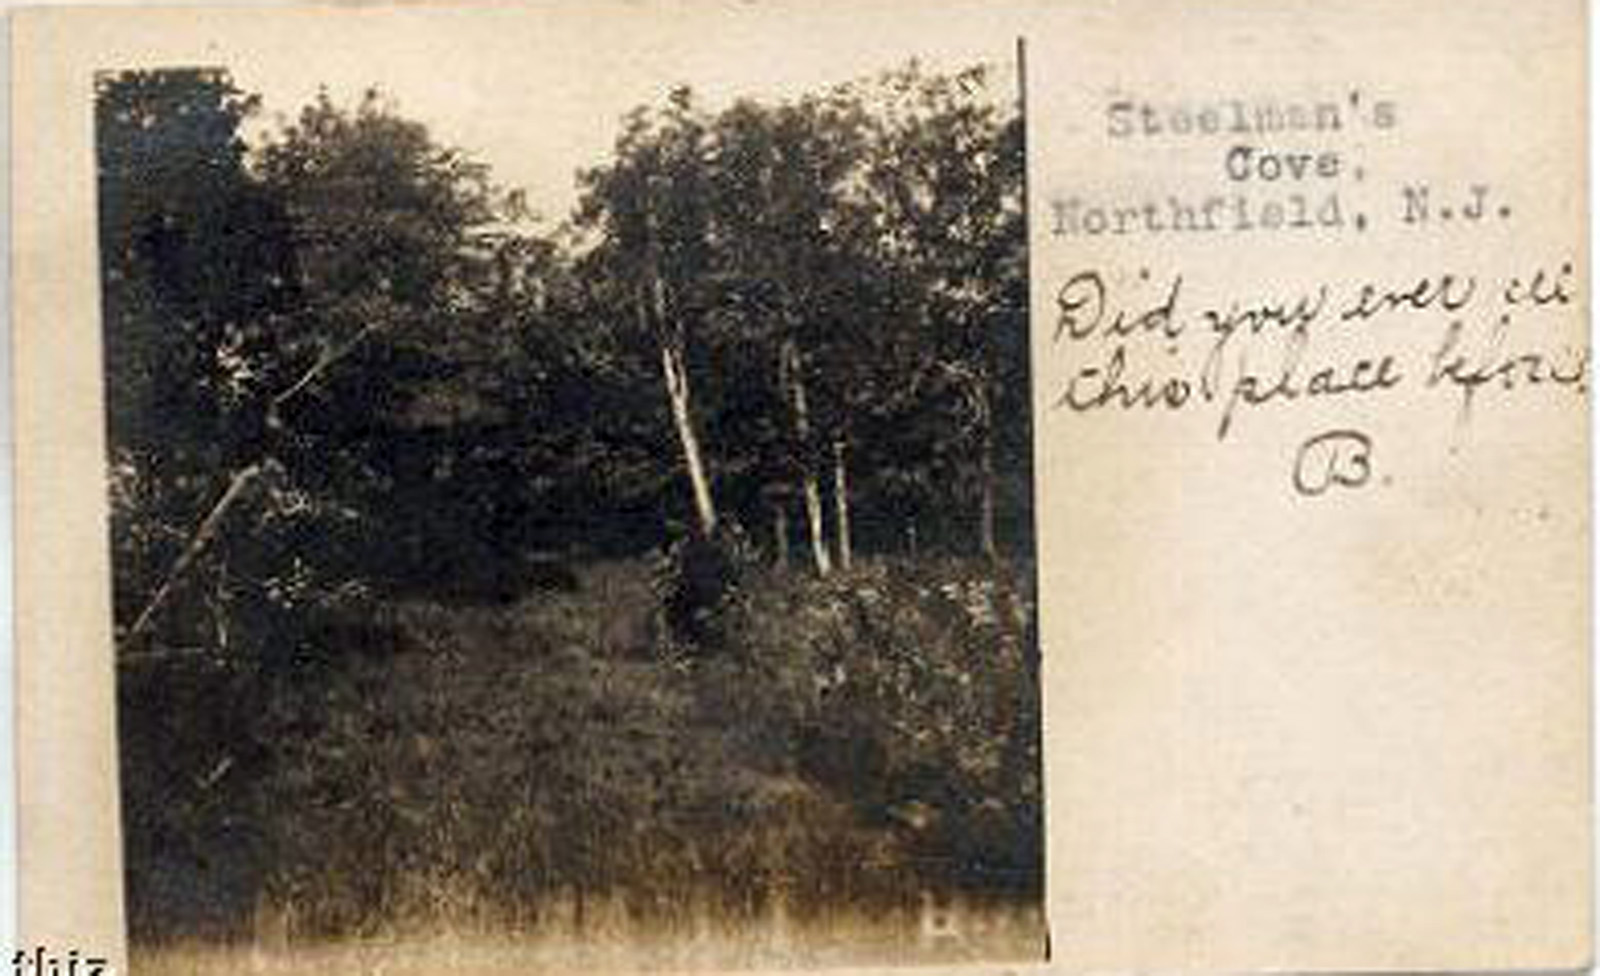 Steelman's
Cove,
Northfield, N.J.
Did you ever
this place before
B.